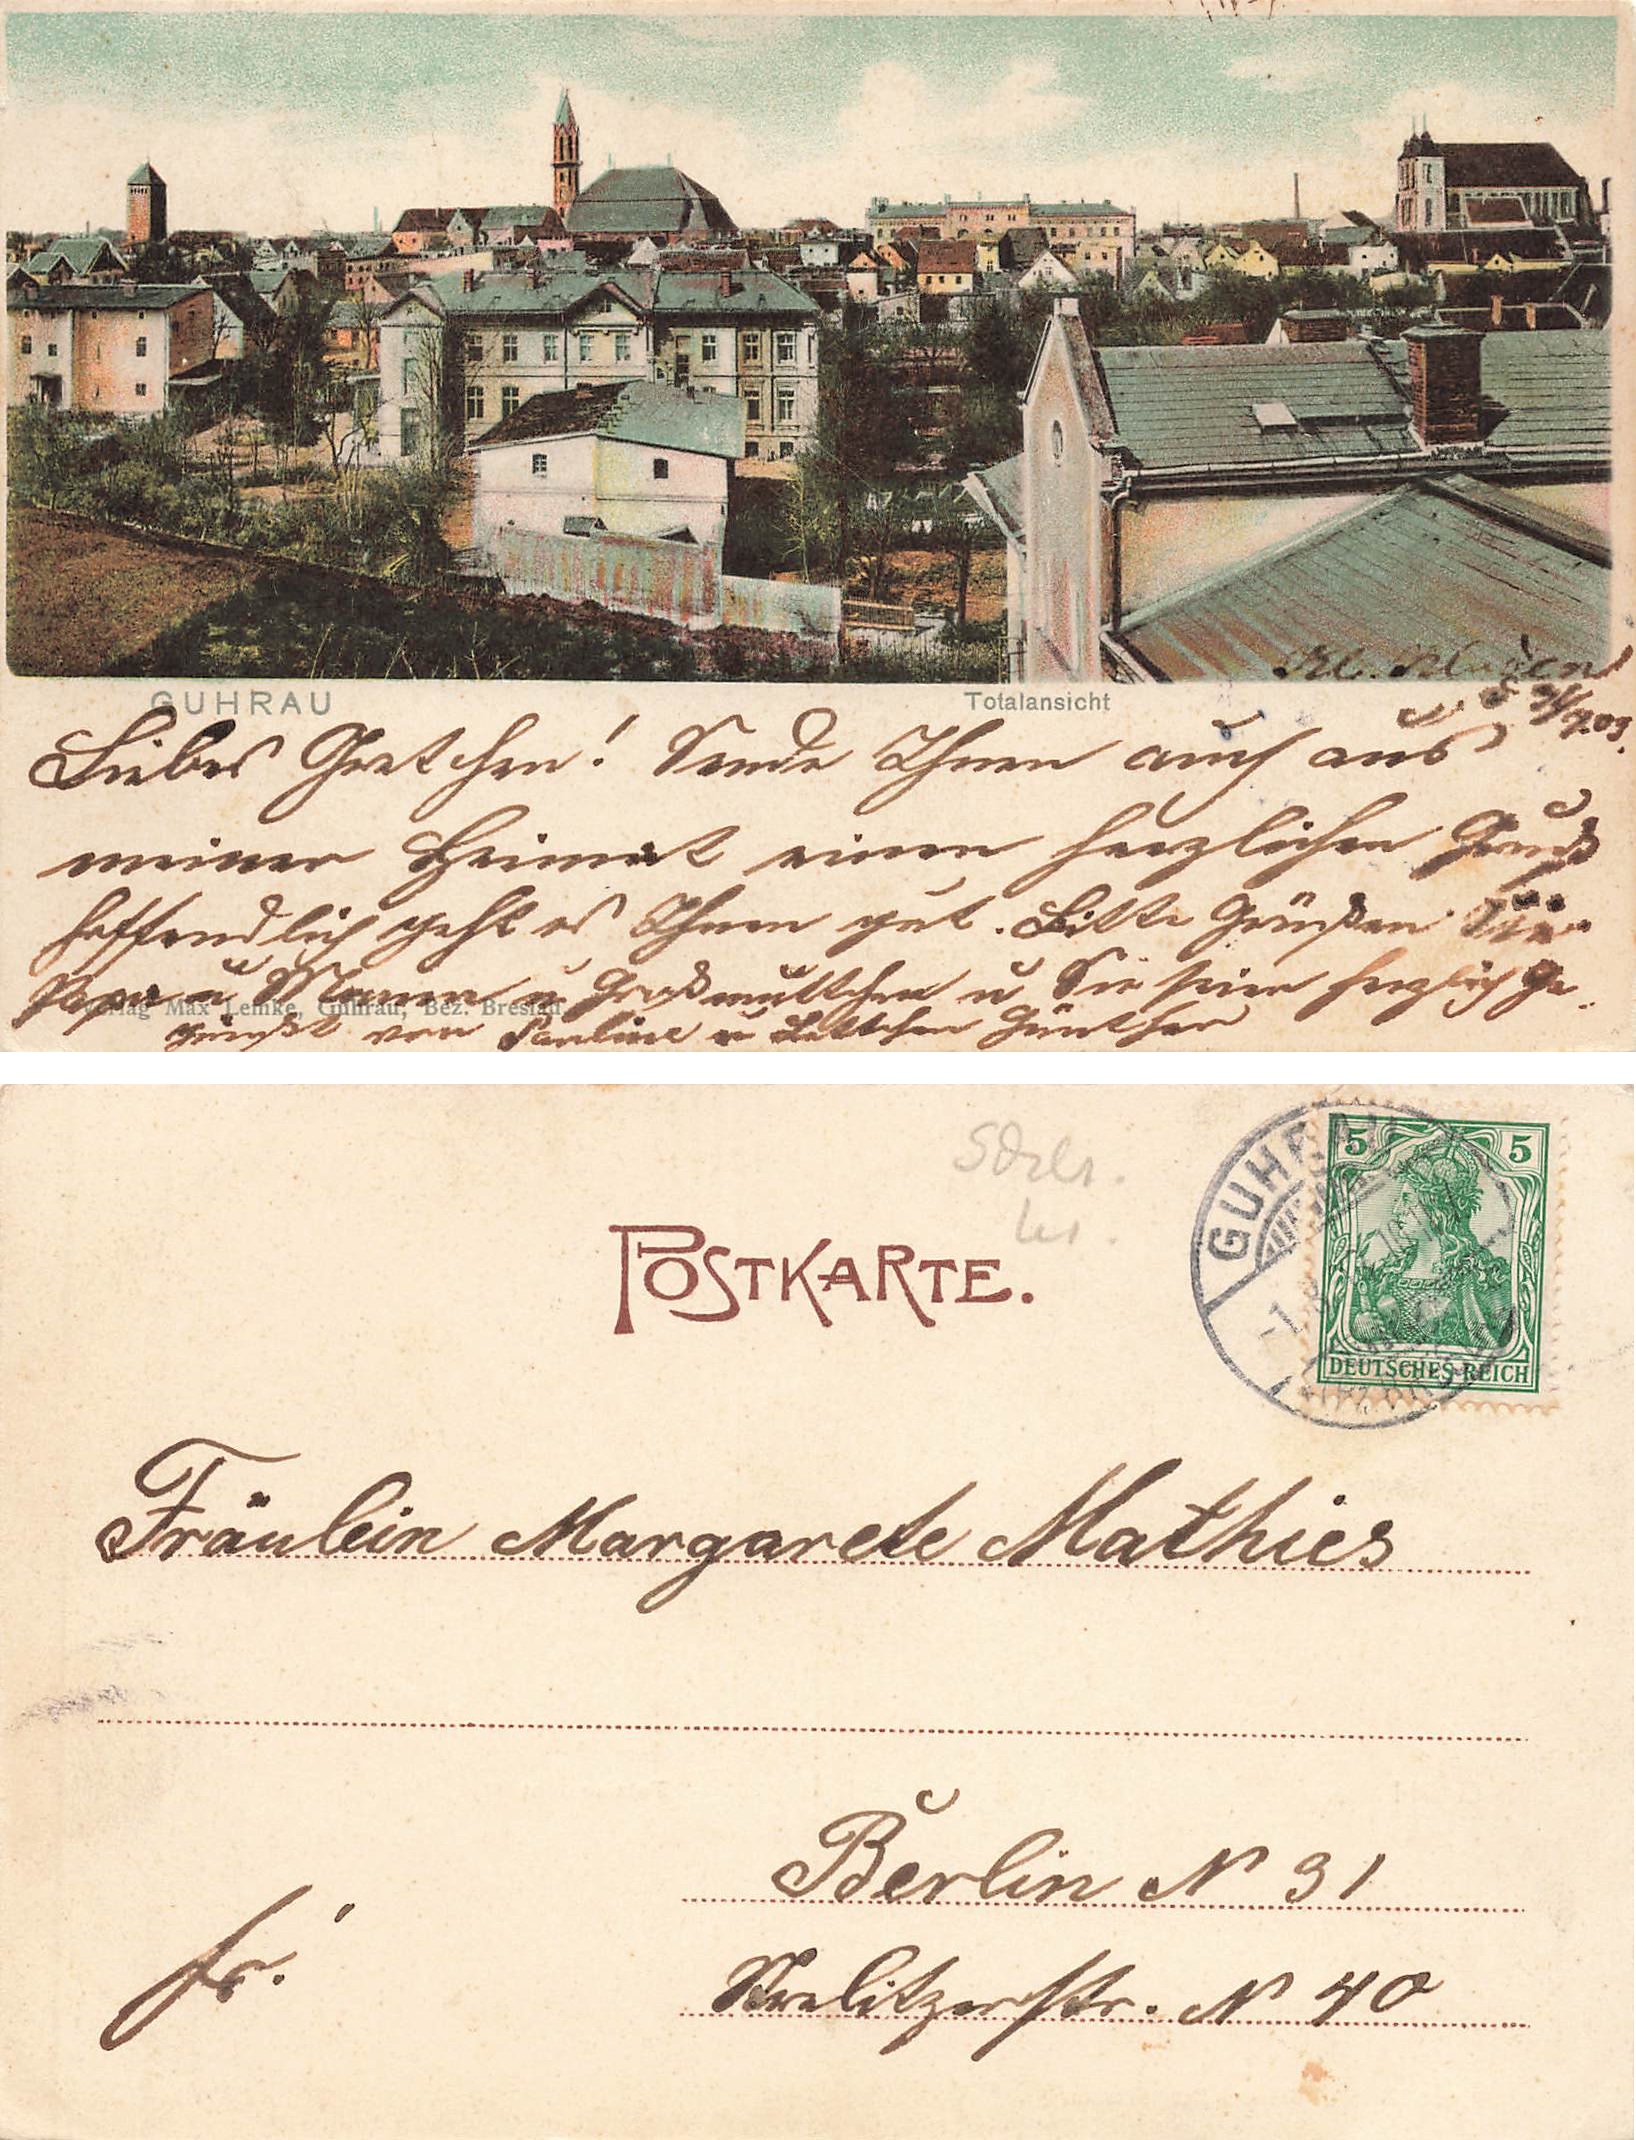 GUHRAU
Totalansicht
Kl. Kloden
31/7.03.
Liebes Gretchen! Sende Ihnen auch aus
meiner Heimat einen herzlichen Gruß
hoffendlich geht es Ihnen gut. Bitte Grüßen Sie
Papa u Mama u Großmuttchen u Sie seien herzlich Ge-
grüßt von Pauline u Lottchen Günther
Verlag Max Lemke, Guhrau, Bez. Breslau
Schles.
POSTKARTE.
GUHRAU
5 5
DEUTSCHES REICH
Fräulein Margarete Mathies
Berlin N 31
fr.
Strelitzerstr. N 40